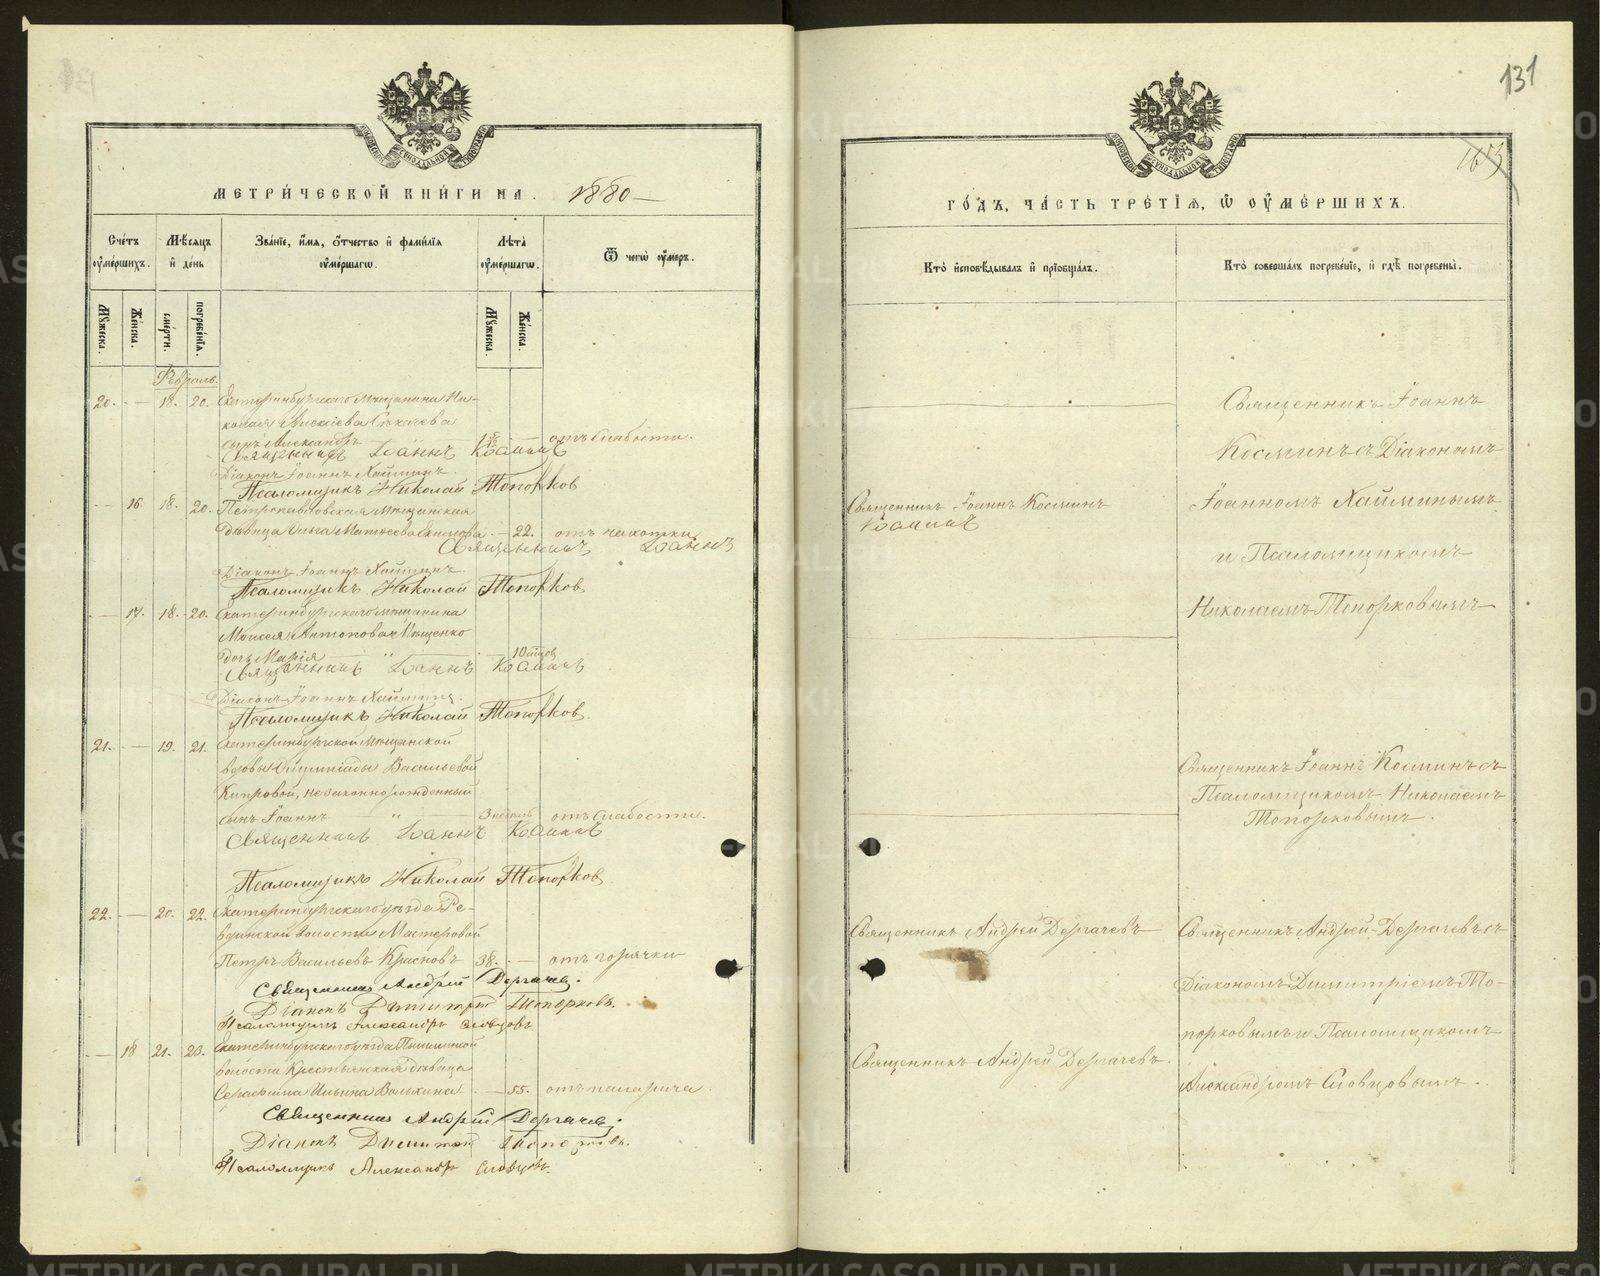 131
163
МЕТРИ́ЧЕСКОЙ КНИ́ГИ НА 1880
Сче́тъ оу҆ме́ршихъ.
Мѣ́сяцъ и҆ де́нь
Зва́нїе, и҆́мя, ѻ҆́тчество и҆ фами́лїя оу҆ме́ршагѡ.
Лѣ́та оу҆ме́ршагѡ.
Ѿ чегѡ̀ оу҆́меръ.
Мꙋ́жеска.
Же́нска.
сме́рти.
погребе́нїя.
Мꙋ́жеска.
Же́нска.
Февраль.
20. — 18. 20. Екатеринбургскаго мѣщанина Ни-
колая Алексѣева
сынъ Александръ отъ слабости.
Священникъ Іоаннъ Космин
Діаконъ Іоаннъ Хайминъ.
Псаломщикъ Николай Топорков
— 16. 18. 20. Петропавловская мѣщанская
дѣвица Ольга Матвеева — 22. отъ чахотки
Священникъ Іоаннъ
Діаконъ Іоаннъ Хайминъ.
Псаломщикъ Николай Топорков
— 17. 18. 20. Екатеринбургскаго мѣщанина
Моисея Антонова
дочь Марія — " —
Священникъ Іоаннъ Космин
Діаконъ Іоаннъ Хайминъ.
Псаломщикъ Николай Топорков.
21. — 19. 21. Екатеринбургской мѣщанской
вдовы Олимпіады Васильевой
незаконнорожденный
сынъ Іоаннъ " отъ слабости.
Священникъ Іоаннъ Космин
Псаломщикъ Николай Топорков
22. — 20. 22. Екатеринбургскаго уѣзда Ре-
вдинской волости Мастеровой
Петръ Васильевъ Красновъ 38. — отъ горячки
Священникъ Андрей Дергачев.
Діаконъ Димитрій Топорковъ.
Псаломщикъ Александръ Словцовъ.
— 18 21. 23. Екатеринбургскаго уѣзда
волости Крестьянская дѣвица
Ильина — 55. отъ паралича.
Священникъ Андрей Дергачев.
Діаконъ Димитрій Топорковъ.
Псаломщикъ Александръ Словцовъ.
ГО́ДЪ, ЧА́СТЬ ТРЕ́ТІЯ, Ѡ҆ ОУ҆МЕ́РШИХЪ.
Кто̀ и҆сповѣ́дывалъ и҆ прїобща́лъ.
Кто̀ соверша́лъ погребе́нїе, и҆ гдѣ̀ погребены̀.
Священникъ Іоаннъ
Косминъ съ Діакономъ
Священникъ Іоаннъ Косминъ
Космин
Іоанномъ Хайминымъ
и Псаломщикомъ
Николаемъ Топорковымъ
Священникъ Іоаннъ Косминъ съ
Псаломщикомъ Николаемъ
Топорковымъ.
Священникъ Андрей Дергачевъ
Священникъ Андрей Дергачевъ съ
Діакономъ Димитріемъ То-
порковымъ и Псаломщикомъ
Священникъ Андрей Дергачевъ.
Александромъ Словцовымъ.
METRIKI.GASO-URAL.RU